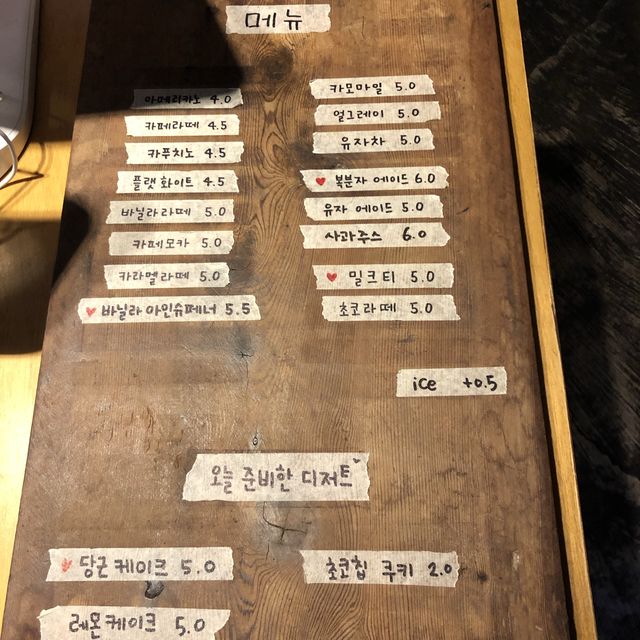 메뉴
아메리카노 4.0
카페라떼 4.5
카푸치노 4.5
플랫 화이트 4.5
바닐라라떼 5.0
카페모카 5.0
카라멜라떼 5.0
♥ 바닐라 아인슈페너 5.5
카모마일 5.0
얼그레이 5.0
유자차 5.0
♥ 복분자 에이드 6.0
유자 에이드 5.0
사과주스 6.0
♥ 밀크티 5.0
초코라떼 5.0
ice +0.5
오늘 준비한 디저트
♥ 당근케이크 5.0
레몬케이크 5.0
초코칩 쿠키 2.0